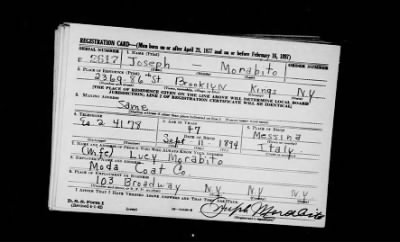 REGISTRATION CARD—(Men born on or after April 28, 1877 and on or before February 16, 1897)
SERIAL NUMBER 1. NAME (Print) ORDER NUMBER
Joseph — Morabito
2. PLACE OF RESIDENCE (Print)
2369 86th St Brooklyn Kings N.Y
[THE PLACE OF RESIDENCE GIVEN ON THE LINE ABOVE WILL DETERMINE LOCAL BOARD
JURISDICTION; LINE 2 OF REGISTRATION CERTIFICATE WILL BE IDENTICAL]
3. MAILING ADDRESS
Same
4. TELEPHONE 5. AGE IN YEARS 6. PLACE OF BIRTH
2 4178 47 Messina
Sept 11 1894 Italy
7. NAME AND ADDRESS OF PERSON WHO WILL ALWAYS KNOW YOUR ADDRESS
(Wife) Lucy Morabito
8. EMPLOYER'S NAME AND ADDRESS
Moda Coat Co
9. PLACE OF EMPLOYMENT OR BUSINESS
103 Broadway N.Y. N.Y N.Y
I AFFIRM THAT I HAVE VERIFIED ABOVE ANSWERS AND THAT THEY ARE TRUE.
D. S. S. Form 1
Joseph Morabito